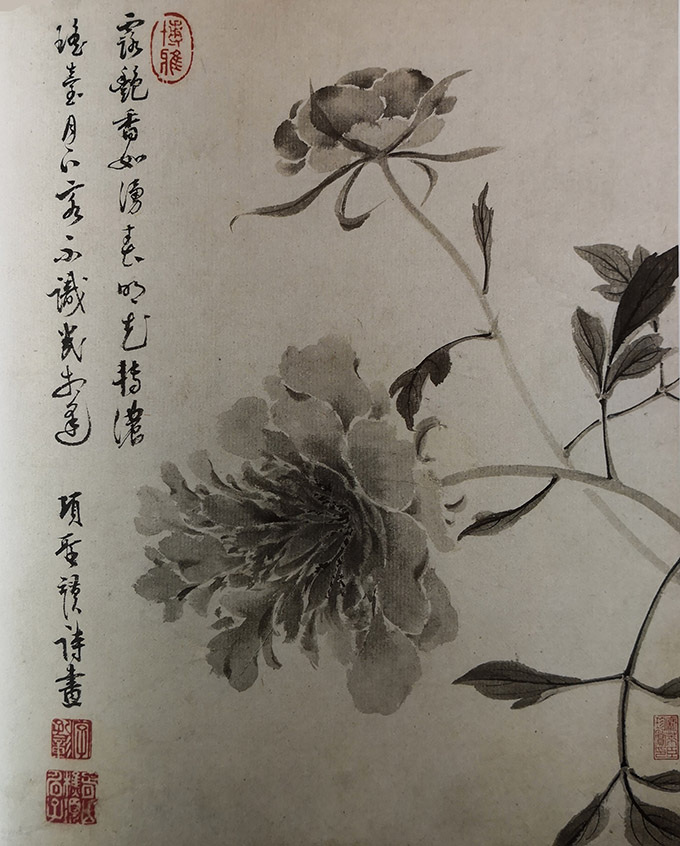 博雅
露艷香如湧春明色轉濃
瑤臺月下客不識幾逢
項聖謨詩畫